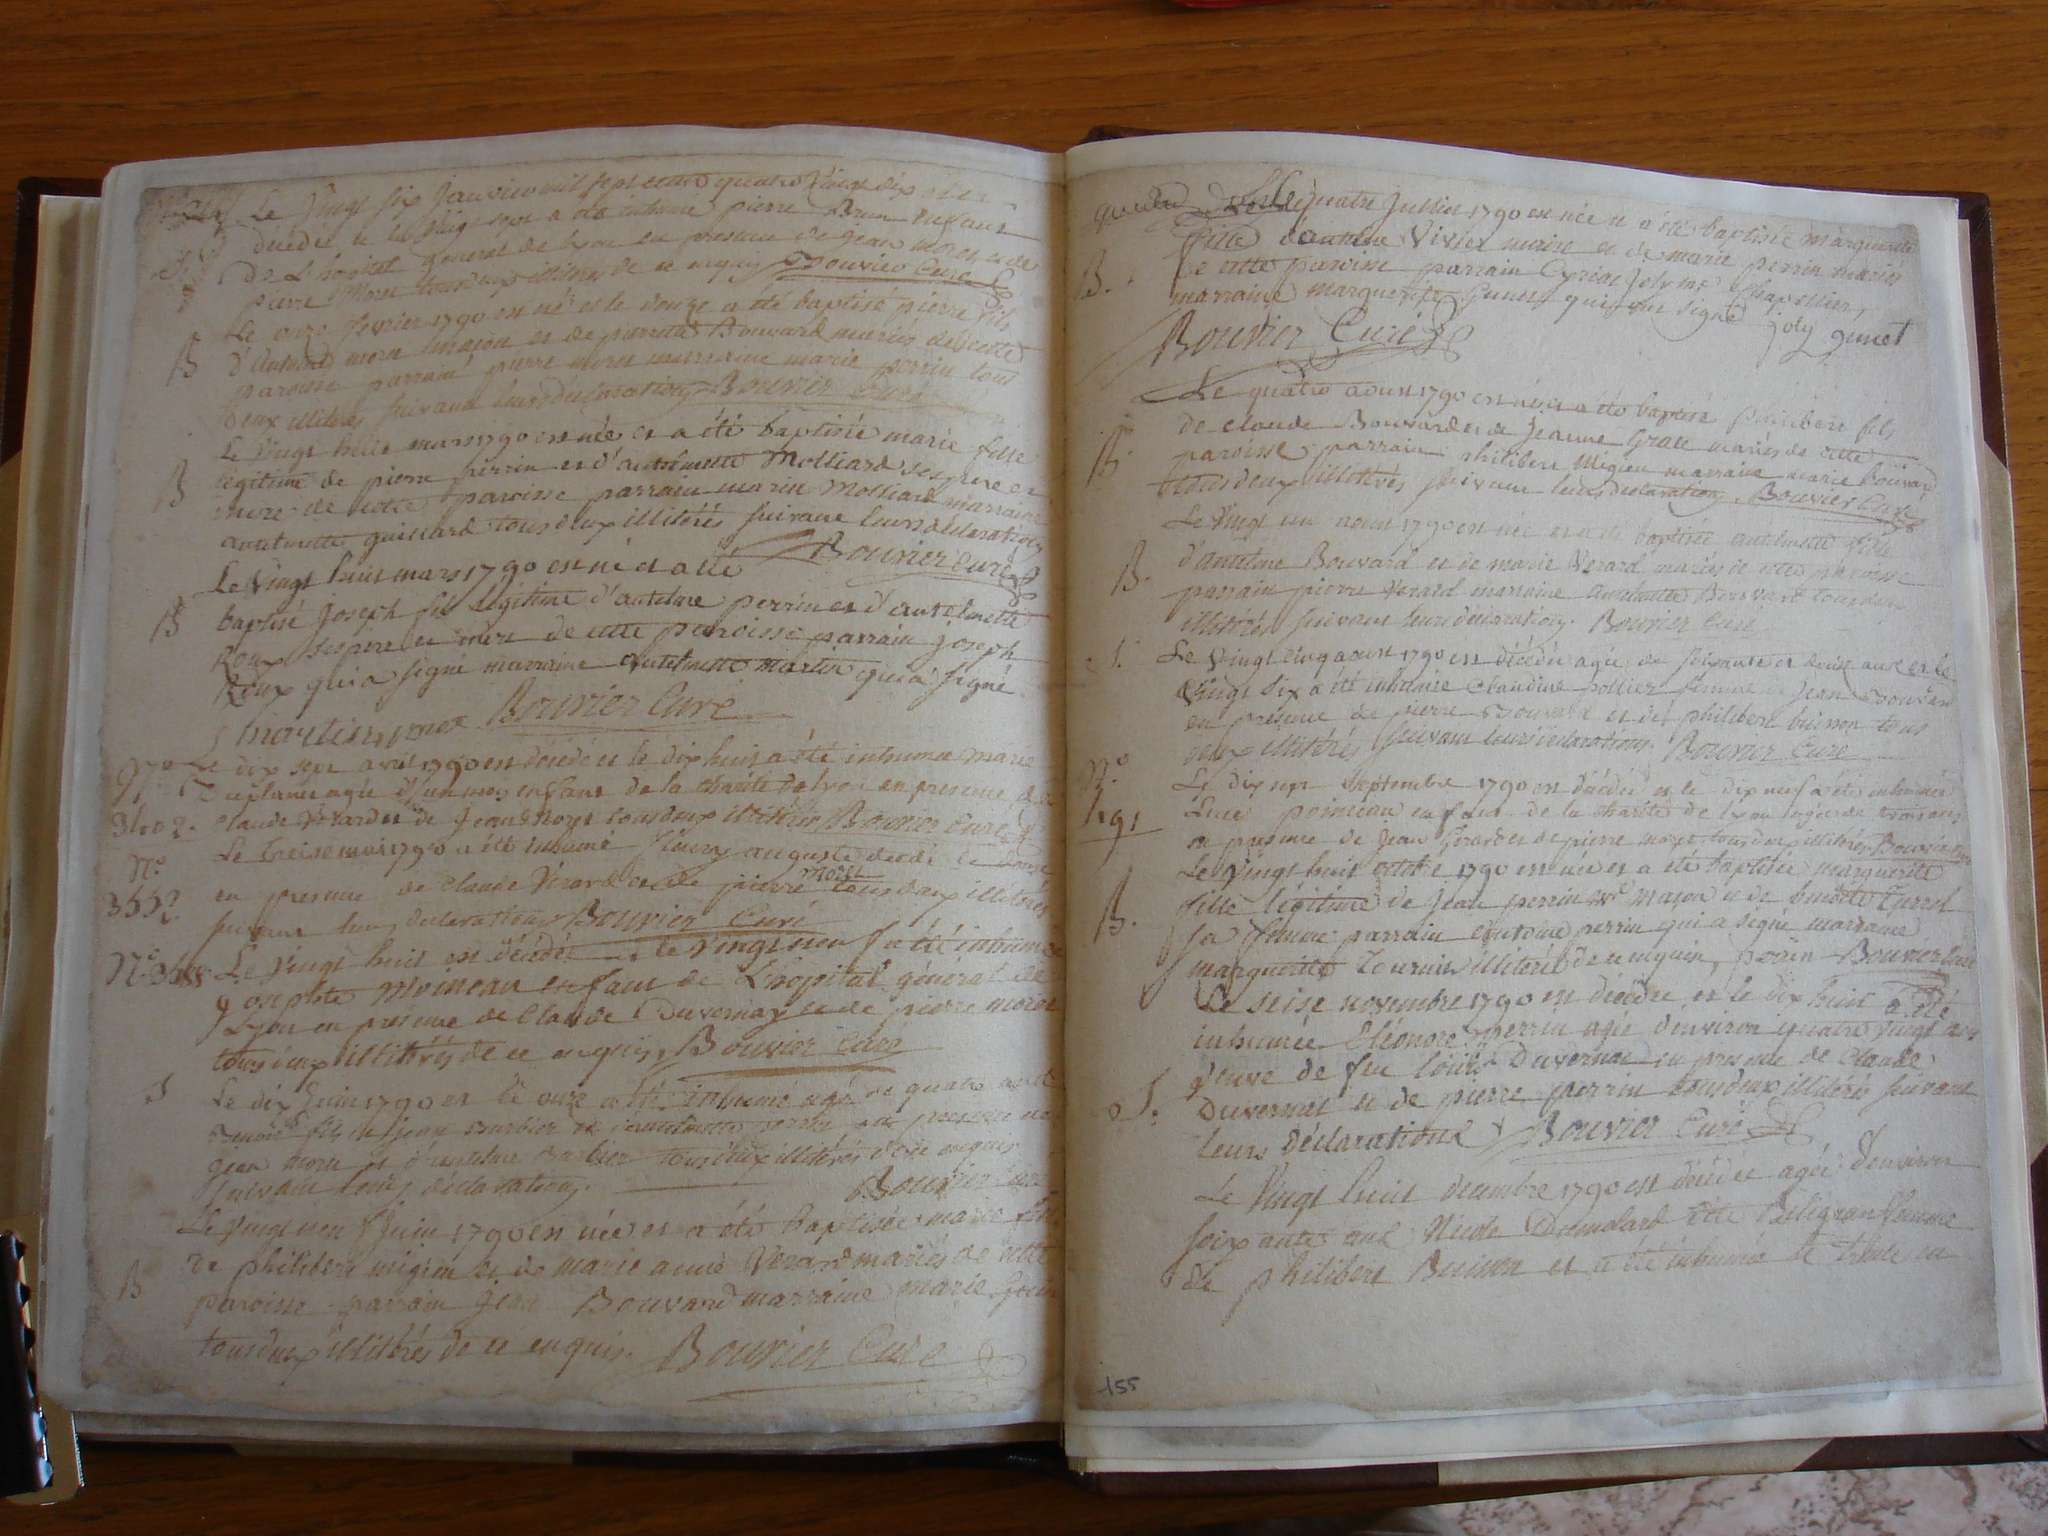 Le vingt six janvier mil sept cent quatre vingt dix est
décédé et le vingt sept a été inhumé pierre Brun enfant
De L'hopital general de Lyon en presence de jean moret et de
pierre Moret tous deux illitérés de ce enquis Bouvier Curé
B
Le onze fevrier 1790 est né et le douze a été baptisé pierre fils
d'Antoine moret maçon et de pierrette Bouvard mariés de cette
paroisse parrain pierre moret marraine marie perrin tous
deux illitérés suivant leurs déclarations Bouvier Curé
B
Le vingt mars 1790 est née et a été baptisée marie fille
légitime de pierre perrin et d'anthelmette Molliard ses pere et
mere de cette paroisse parrain marin Molliard marraine
antelmette guillard tous deux illitérés suivant leurs déclarations
Bouvier Curé
B
Le vingt huit mars 1790 est né et a été
baptisé Joseph fils légitime d'antelme perrin et d'antelmette
Roux ses pere et mere de cette paroisse parrain joseph
Roux qui a signé marraine antelmette martin qui a signé
martin roux Bouvier Curé
N°
3402.
Le dix sept avril 1790 est décédé et le dix huit a été inhumée marie
agée d'un moy enfant de la charité de lyon en presence de
Claude Verard et de Jean Moret tous deux illitérés Bouvier Curé
N°
3552
Le treise mai 1790 a été inhumé fleury auguste décédé le douze
en presence de Claude Verard et de pierre moret tous deux illitérés
suivant leurs déclarations Bouvier Curé
N° 3688
Le vingt huit est décédé et le vingt neuf a été inhumée
josephte Moineau enfant de L'hopital général de
Lyon en presence de Claude Duvernay et de pierre moret
tous deux illitérés de ce enquis, Bouvier Curé
S
Le dix juin 1790 et le onze a été inhumé agé de quatre
fils de jean Barbier et d'antelmette perrin en presence de
jean moret et d'antelme Barbier tous deux illitérés de ce enquis
suivant leurs déclarations. Bouvier Curé
B
Le vingt neuf Juin 1790 est née et a été baptisée marie fille
de philibert migieu et de marie anne Verard mariés de cette
paroisse parrain Jean Bouvard marraine marie
tous deux illitérés de ce enquis. Bouvier Curé
B.
Le quatre Juillet 1790 est née et a été baptisée marguerite
fille d'antelme Vivier et de marie perrin mariés
de cette paroisse parrain Cyriac Joly me Chapellier
marraine marguerite Gunet qui ont signé joly gunet
Bouvier Curé
B.
Le quatre aoust 1790 est né et a été baptisé philibert fils
de claude Bouvard et de Jeanne Grate mariés de cette
paroisse parrain philibert Migieu marraine marie Bouvard
tous deux illitérés suivant leurs déclarations, Bouvier Curé
B.
Le vingt un aoust 1790 est née et a été baptisée antelmette fille
d'antelme Bouvard et de marie Verard mariés de cette paroisse
parrain pierre Verard marraine antelmette Bouvard tous deux
illitérés suivant leurs déclarations. Bouvier Curé
S.
Le vingt cinq aoust 1790 est décédée agée de soixante et douse ans et le
vingt six a été inhumée Claudine pollier femme de Jean Bouvard
en presence de pierre Bouvard et de philibert buisson tous
deux illitérés suivant leurs déclarations. Bouvier Curé
N°
Le dix sept septembre 1790 est décédée et le dix neuf a été inhumée
Luce poineau enfant de la charité de lyon agée de trois ans
en presence de Jean Girard et de pierre moret tous deux illitérés Bouvier Curé
B.
Le vingt huit octobre 1790 est née et a été baptisée marguerite
fille légitime de Jean perrin me maçon et de benoite Turrel
sa femme parrain antoine perrin qui a signé marraine
marguerite illitérée de ce enquis, perrin Bouvier Curé
S.
Le seise novembre 1790 est décédée et le dix huit a été
inhumée Eléonore perrin agée d'environ quatre vingt ans
veuve de feu louis Duvernai en presence de Claude
Duvernai et de pierre perrin tous deux illitérés suivant
leurs déclarations Bouvier Curé
Le vingt huit decembre 1790 est décédée agée d'environ
soixante ans Nicole Dumolard dite Beligran femme
de philibert Buisson et a été inhumée le trente en
155